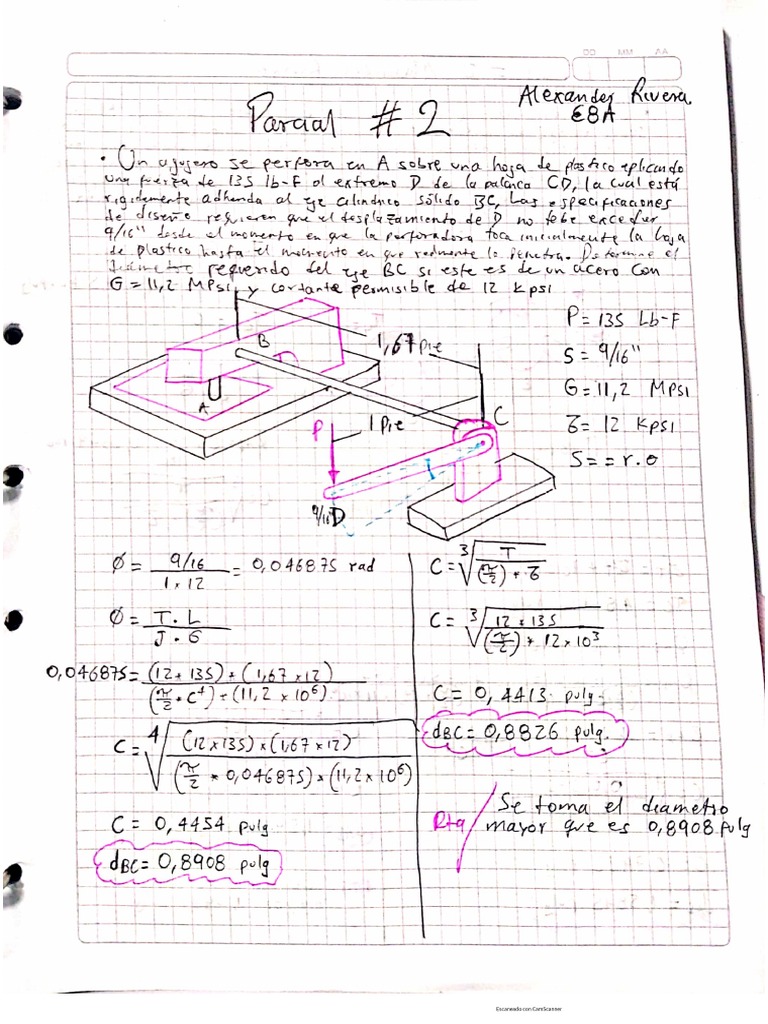 DD MM AA
Alexander Rivera
E8A
Parcial #2
• Un agujero se perfora en A sobre una hoja de plastico aplicando
una fuerza de 135 lb-F al extremo D de la palanca CD, la cual está
rigidamente adherida al eje cilindrico sólido BC, Las especificaciones
de diseño requieren que el desplazamiento de D no debe exceder
9/16" desde el momento en que la perforadora toca inicialmente la hoja
de plastico hasta el momento en que realmente la penetra. Determine el
diámetro requerido del eje BC si este es de un acero con
G = 11,2 MPsi y cortante permisible de 12 Kpsi
P = 135 Lb-F
S = 9/16"
G = 11,2 MPsi
τ = 12 Kpsi
S = = r.θ
B
1,67 Pie
A
P
1 Pie
C
9/16 D
Ø = 9/16 / 1 × 12 = 0,046875 rad
Ø = T . L / J . G
0,046875 = (12 * 135) * (1,67 * 12) / (π/2 * C⁴) * (11,2 × 10⁶)
C = ⁴√ (12 × 135) × (1,67 × 12) / (π/2 * 0,046875) × (11,2 × 10⁶)
C = 0,4454 pulg
dBC = 0,8908 pulg
C = ³√ T / (π/2) * τ
C = ³√ 12 * 135 / (π/2) * 12 × 10³
C = 0,4413 pulg
dBC = 0,8826 pulg.
Rta/ Se toma el diametro
mayor que es 0,8908 pulg
Escaneado con CamScanner